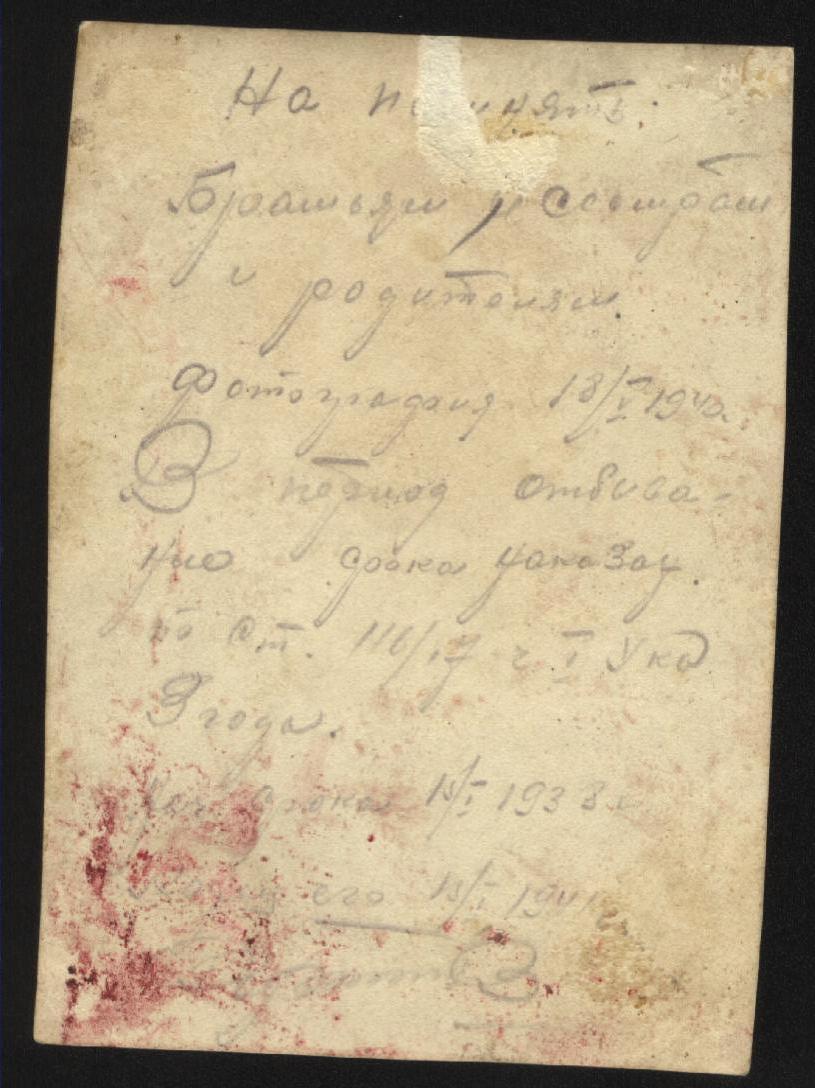 На память.
Братьям и сестрам
и родителям.
Фотография 18/V 1940 г.
В период отбыва-
нию срока наказан.
по ст. 116/17 ч I Укд
3 года.
Нач. срока 15/I 1938 г.
его 15/I 1941